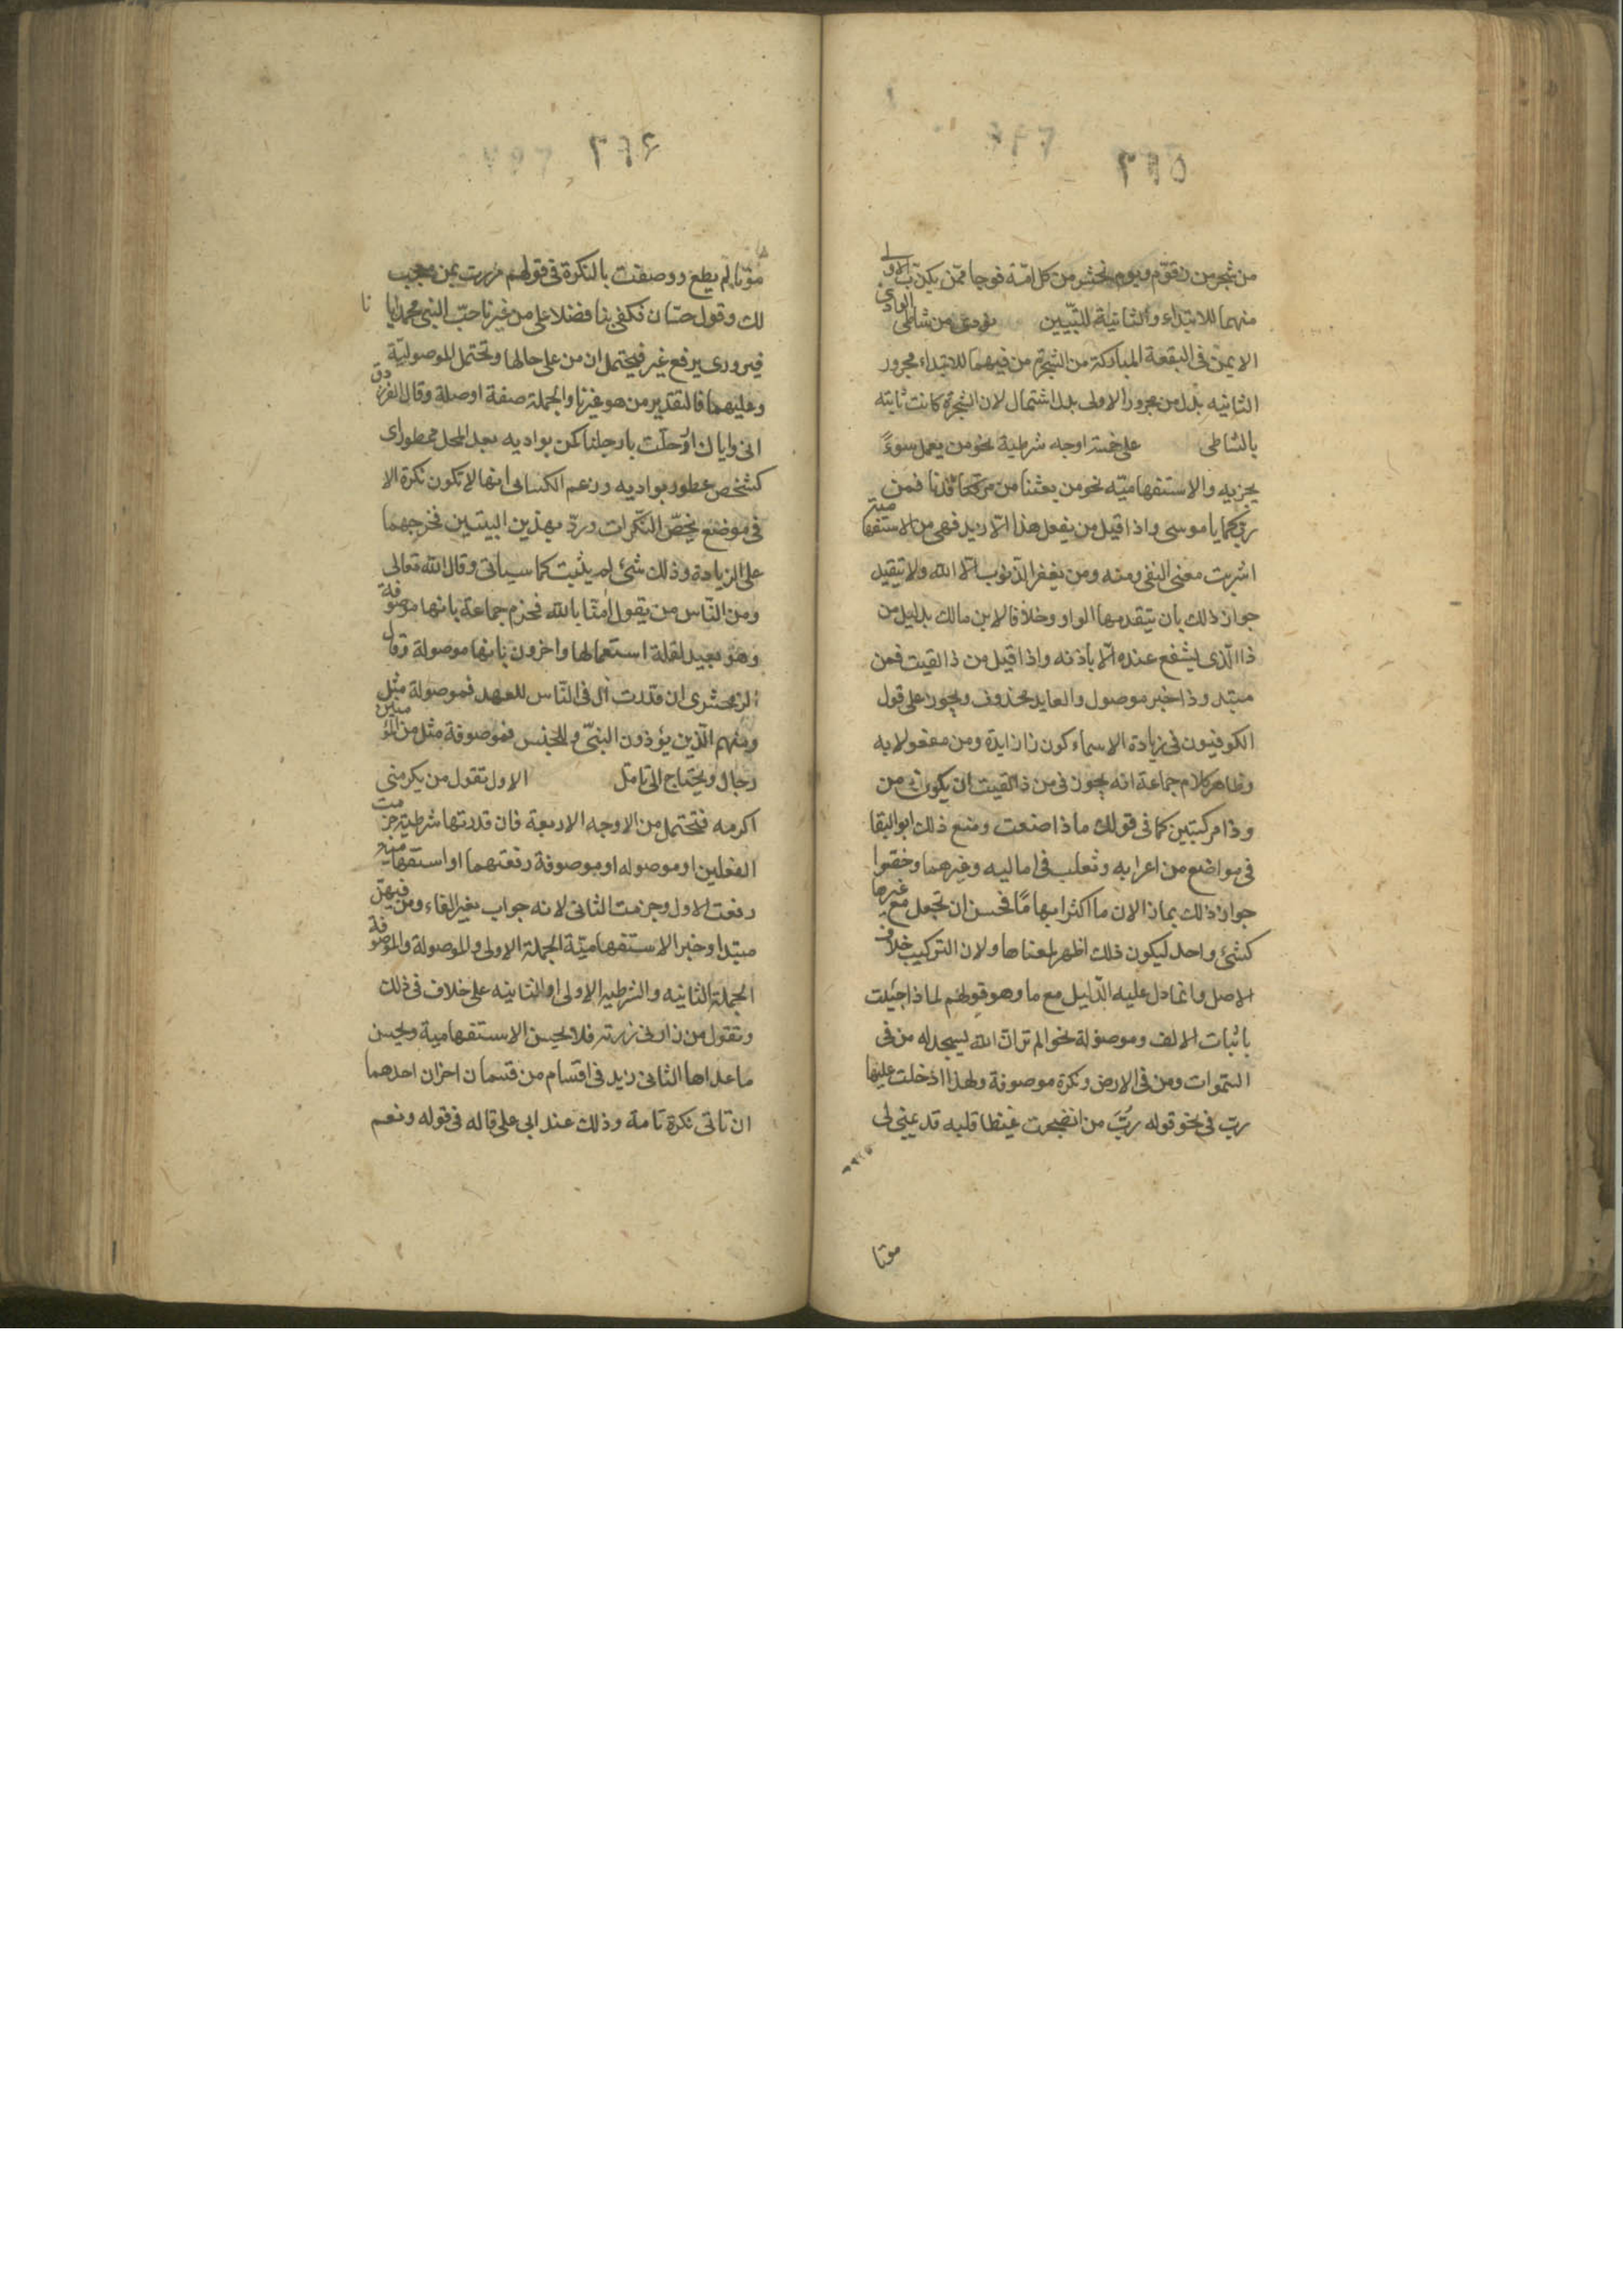 ٢٩٥
من شجر من زقوم ويوم نحشر من كل امّة فوجا ممّن يكذّب الاولى
منهما للابتداء والثانية للتبيين نودى من شاطى الوادى
الايمن فى البقعة المباركة من الشجرة من فيهما للابتداء مجرور
الثانيه بدل من مجرور الاولى بدل اشتمال لان الشجرة كانت ثابته
بالشاطى على خمسة اوجه شرطية نحو من يعمل سوءً
يجز به والاستفهاميّه نحو من بعثنا من مرقدنا فمن
ربكما يا موسى واذا قيل من يفعل هذا الا زيد فهى من الاستفهامية
اشربت معنى النفى ومنه ومن يغفر الذنوب الا الله ولا يتقيد
جواز ذلك بان يتقدمها الواو وخلافا لابن مالك بدليل من
ذا الّذى يشفع عنده الّا بأذنه واذا قيل من ذا لقيت فمن
مبتد وذا خبر موصول والعايد محذوف ويجوز على قول
الكوفيون فى زيادة الاسماء كون ذا زايدة ومن مفعولا به
وظاهر كلام جماعة انه يجوز فى من ذا لقيت ان يكون من
وذا مركبتين كما فى قولك ما ذا صنعت ومنع ذلك ابو البقا
فى مواضع من اعرابه وثعلب فى اماليه وغيرهما وخصّوا
جواز ذلك بماذا لان ما اكثر ابهامًا فحسن ان تجعل مع غيرها
كشئ واحد ليكون ذلك اظهر لمعناها ولان التركيب خلاف
الاصل وانما دل عليه الدّليل مع ما وهو قولهم لما ذا جئت
باثبات الالف وموصولة نحو الم تر ان الله يسجد له من فى
السّموات ومن فى الارض ونكرة موصوفة ولهذا ادخلت عليها
ربّ فى نحو قوله ربّ من انضجت غيظا قلبه قد تمنى لى
موتا
٢٩٦
موتا لم يطع ووصفت بالنكرة فى قولهم مررت بمن معجب
لك وقول حسّان فكفى بنا فضلا على من غيرنا حبّ النبى محمد ايانا
فيروى برفع غير فيحتمل ان من على حالها وتحتمل الموصوليّة
وعليهما فالتقدير من هو غيرنا والجملة صفة او صلة وقال الفرزدق
انى واياك اذ حلّت بارجلنا كمن بواديه بعد المحل ممطور اى
كشخص ممطور بواديه وزعم الكسائى انها لا تكون نكرة الا
فى موضع يخصّ النّكرات وردّ بهذين البيتين فخرجهما
على الزيادة وذلك شئ لم يثبت كما سياتى وقال الله تعالى
ومن النّاس من يقول امنّا بالله فجزم جماعة بانها موصوفة
وهو بعيد لقلة استعمالها واخرون بانها موصولة وقال
الزمخشرى ان قدرت أل فى النّاس للعهد فموصولة مثل
ومنهم الّذين يؤذون النبىّ وللجنس فموصوفة مثل من المؤمنين
رجال ويحتاج الى تامل الاول تقول من يكرمنى
اكرمه فتحتمل من الاوجه الاربعة فان قدرتها شرطية جزمت
الفعلين او موصوله او موصوفة رفعتهما او استفهامية
رفعت الاول وجزمت الثانى لانه جواب بغير الفاء ومن فيهنّ
مبتدا وخبر الاستفهاميّة الجملة الاولى والموصولة والموصوفة
الجملة الثانيه والشرطيه الاولى او الثانيه على خلاف فى ذلك
وتقول من زارنى زرته فلا يحسن الاستفهامية ويحسن
ما عداها الثانى زيد فى اقسام من قسمان اخران احدهما
ان تاتى نكرة تامة وذلك عند ابى على قاله فى قوله ونعم